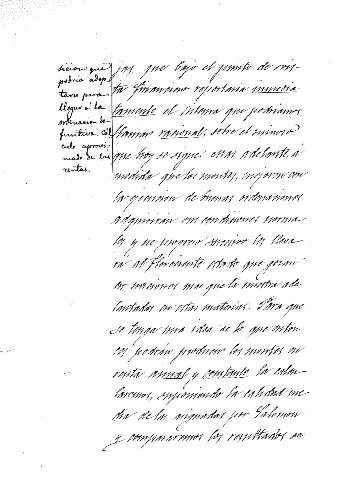 sicion que
podria adop
tarse para
llegar á la
ordenacion de-
finitiva. Cál
culo aproxi-
mado de las
rentas.
jas que bajo el punto de vis-
ta financiero reportaria inmedia
tamente el sistema que podriamos
llamar racional, sobre el
que hoy se sigue: mas adelante, á
medida que los montes, mejoren con
la ejecucion de buenas ordenaciones
adquirirán sus condiciones norma-
les y su progreso sucesivo los lleva
rá al floreciente estado que gozan
en naciones mas que la nuestra ade
lantadas en estas materias. Para que
se tenga una idea de lo que enton-
ces podrán producir los montes en
renta anual y constante la calcu-
laremos, suponiendo la calidad me-
dia de las asignadas por Salomon
y compararemos los resultados con